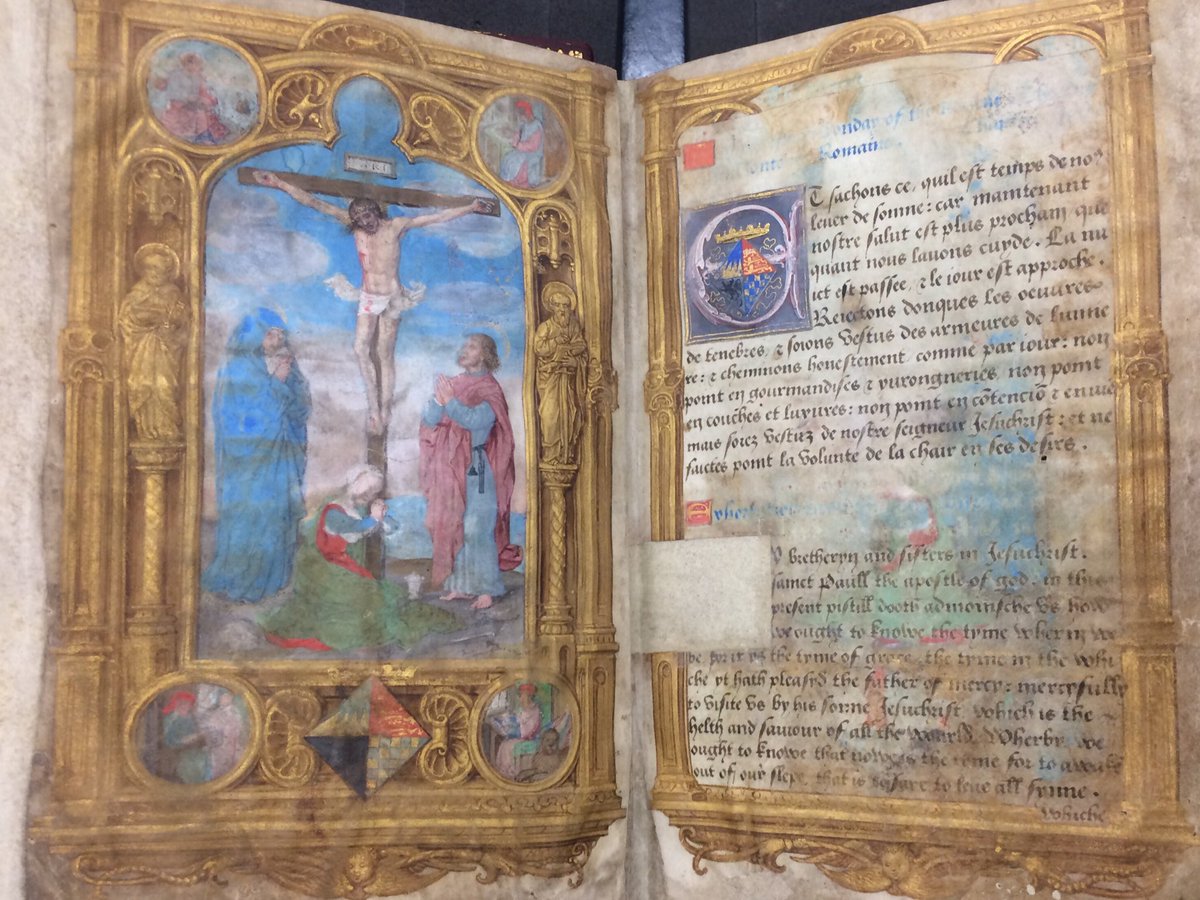 INRI
onday of the
Romain
Et sachons ce, quil est temps de noꝰ
leuer de somne: car maintenant
nostre salut est plus procham que
quant nous lauons cuyde. La nu
ict est passee, ⁊ le iour est approche.
Reiectons donques les oeuures
de tenebres, ⁊ soions vestus des armeures de lumie
re: ⁊ cheminons honestement comme par iour: non
point en gourmandises ⁊ yurongneries, non point
en couches et luxures: non point en cōtenciō ⁊ enuie
mais soiez vestuz de nostre seigneur Jesuchrist: et ne
faictes point la volunte de la chair en ses desirs.
bretheryn and sisters in Jesuchrist.
sainct Paull the apostle of god, in this
present pistill dooth admonische vs how
we ought to knowe the tyme wher in we
be, for it ys the tyme of grace, the tyme in the whi
che yt hath pleasyd the father of mercy: mercyfully
to visite vs by his sonne Jesuchrist, which is the
helth and saviour of all the world. Wherby we
ought to knowe that now ys the tyme for to awake
out of our slepe, that is to leue all synne.
Whiche